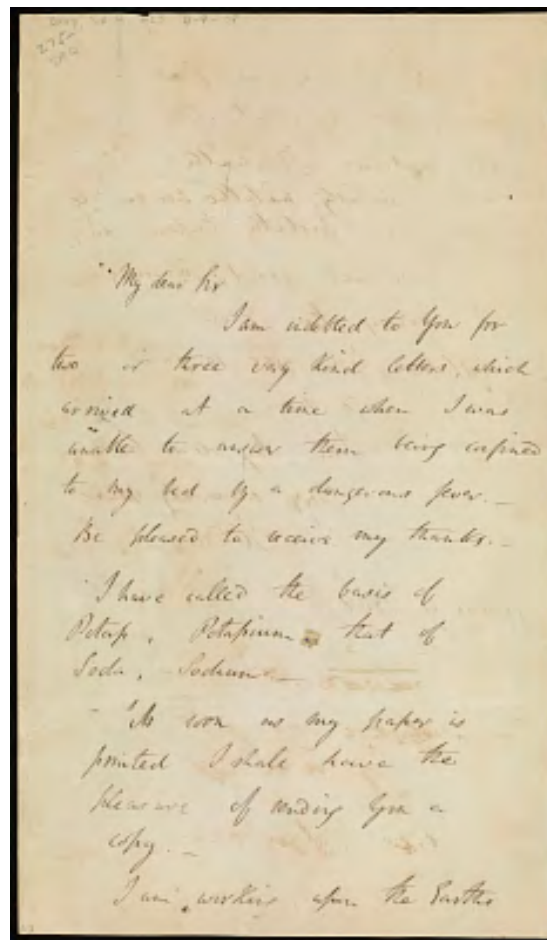 My dear Sir
I am indebted to You for
two or three very kind letters, which
arrived at a time when I was
unable to answer them being confined
to my bed by a dangerous fever. _
Be pleased to receive my thanks. _
I have called the basis of
Potash, Potassium & that of
Soda, Sodium _
As soon as my paper is
printed I shall have the
pleasure of sending You a
copy. _
I am working upon the Earths